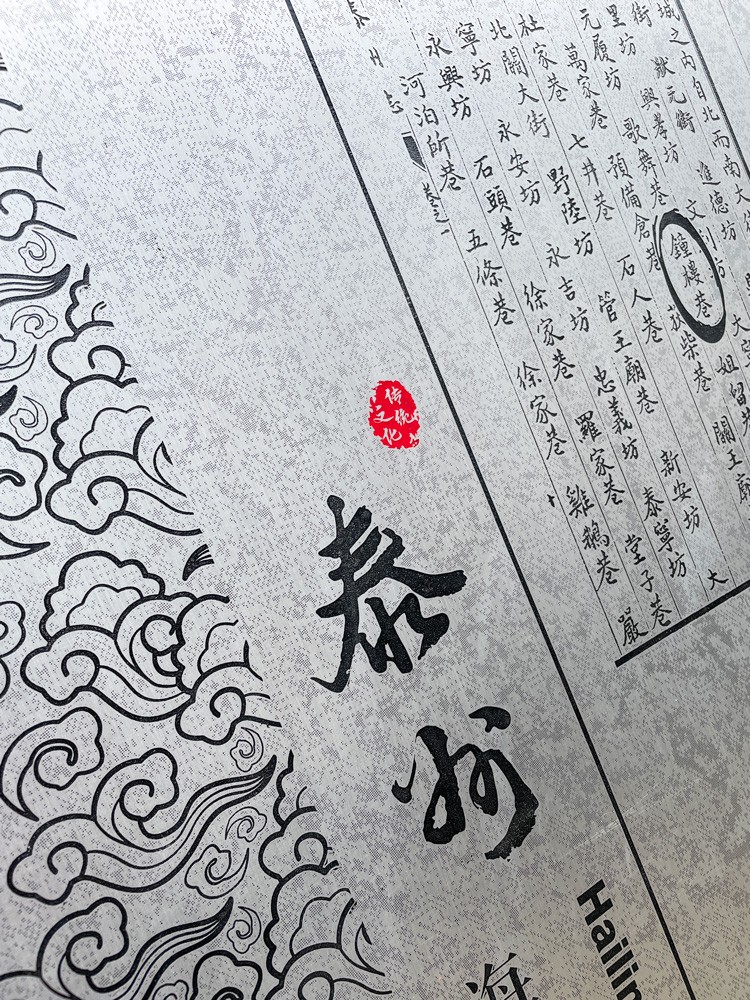 城之內自北而南大
街 狀元街 進德坊
里坊 興孝坊 文利坊 大
元履坊 歌舞巷 鐘樓巷 姐留
萬家巷 預備倉巷 荻柴巷 關王廟
杜家巷 七井巷 石人巷
北關大街 野陸坊 管王廟巷 新安坊 大
寧坊 永安坊 永吉坊 忠義坊 泰寧坊
永興坊 石頭巷 徐家巷 羅家巷 堂子巷
河泊所巷 五條巷 徐家巷 雞鵝巷 嚴
泰州志
卷之一
传统
文化
泰州
海
Hailin